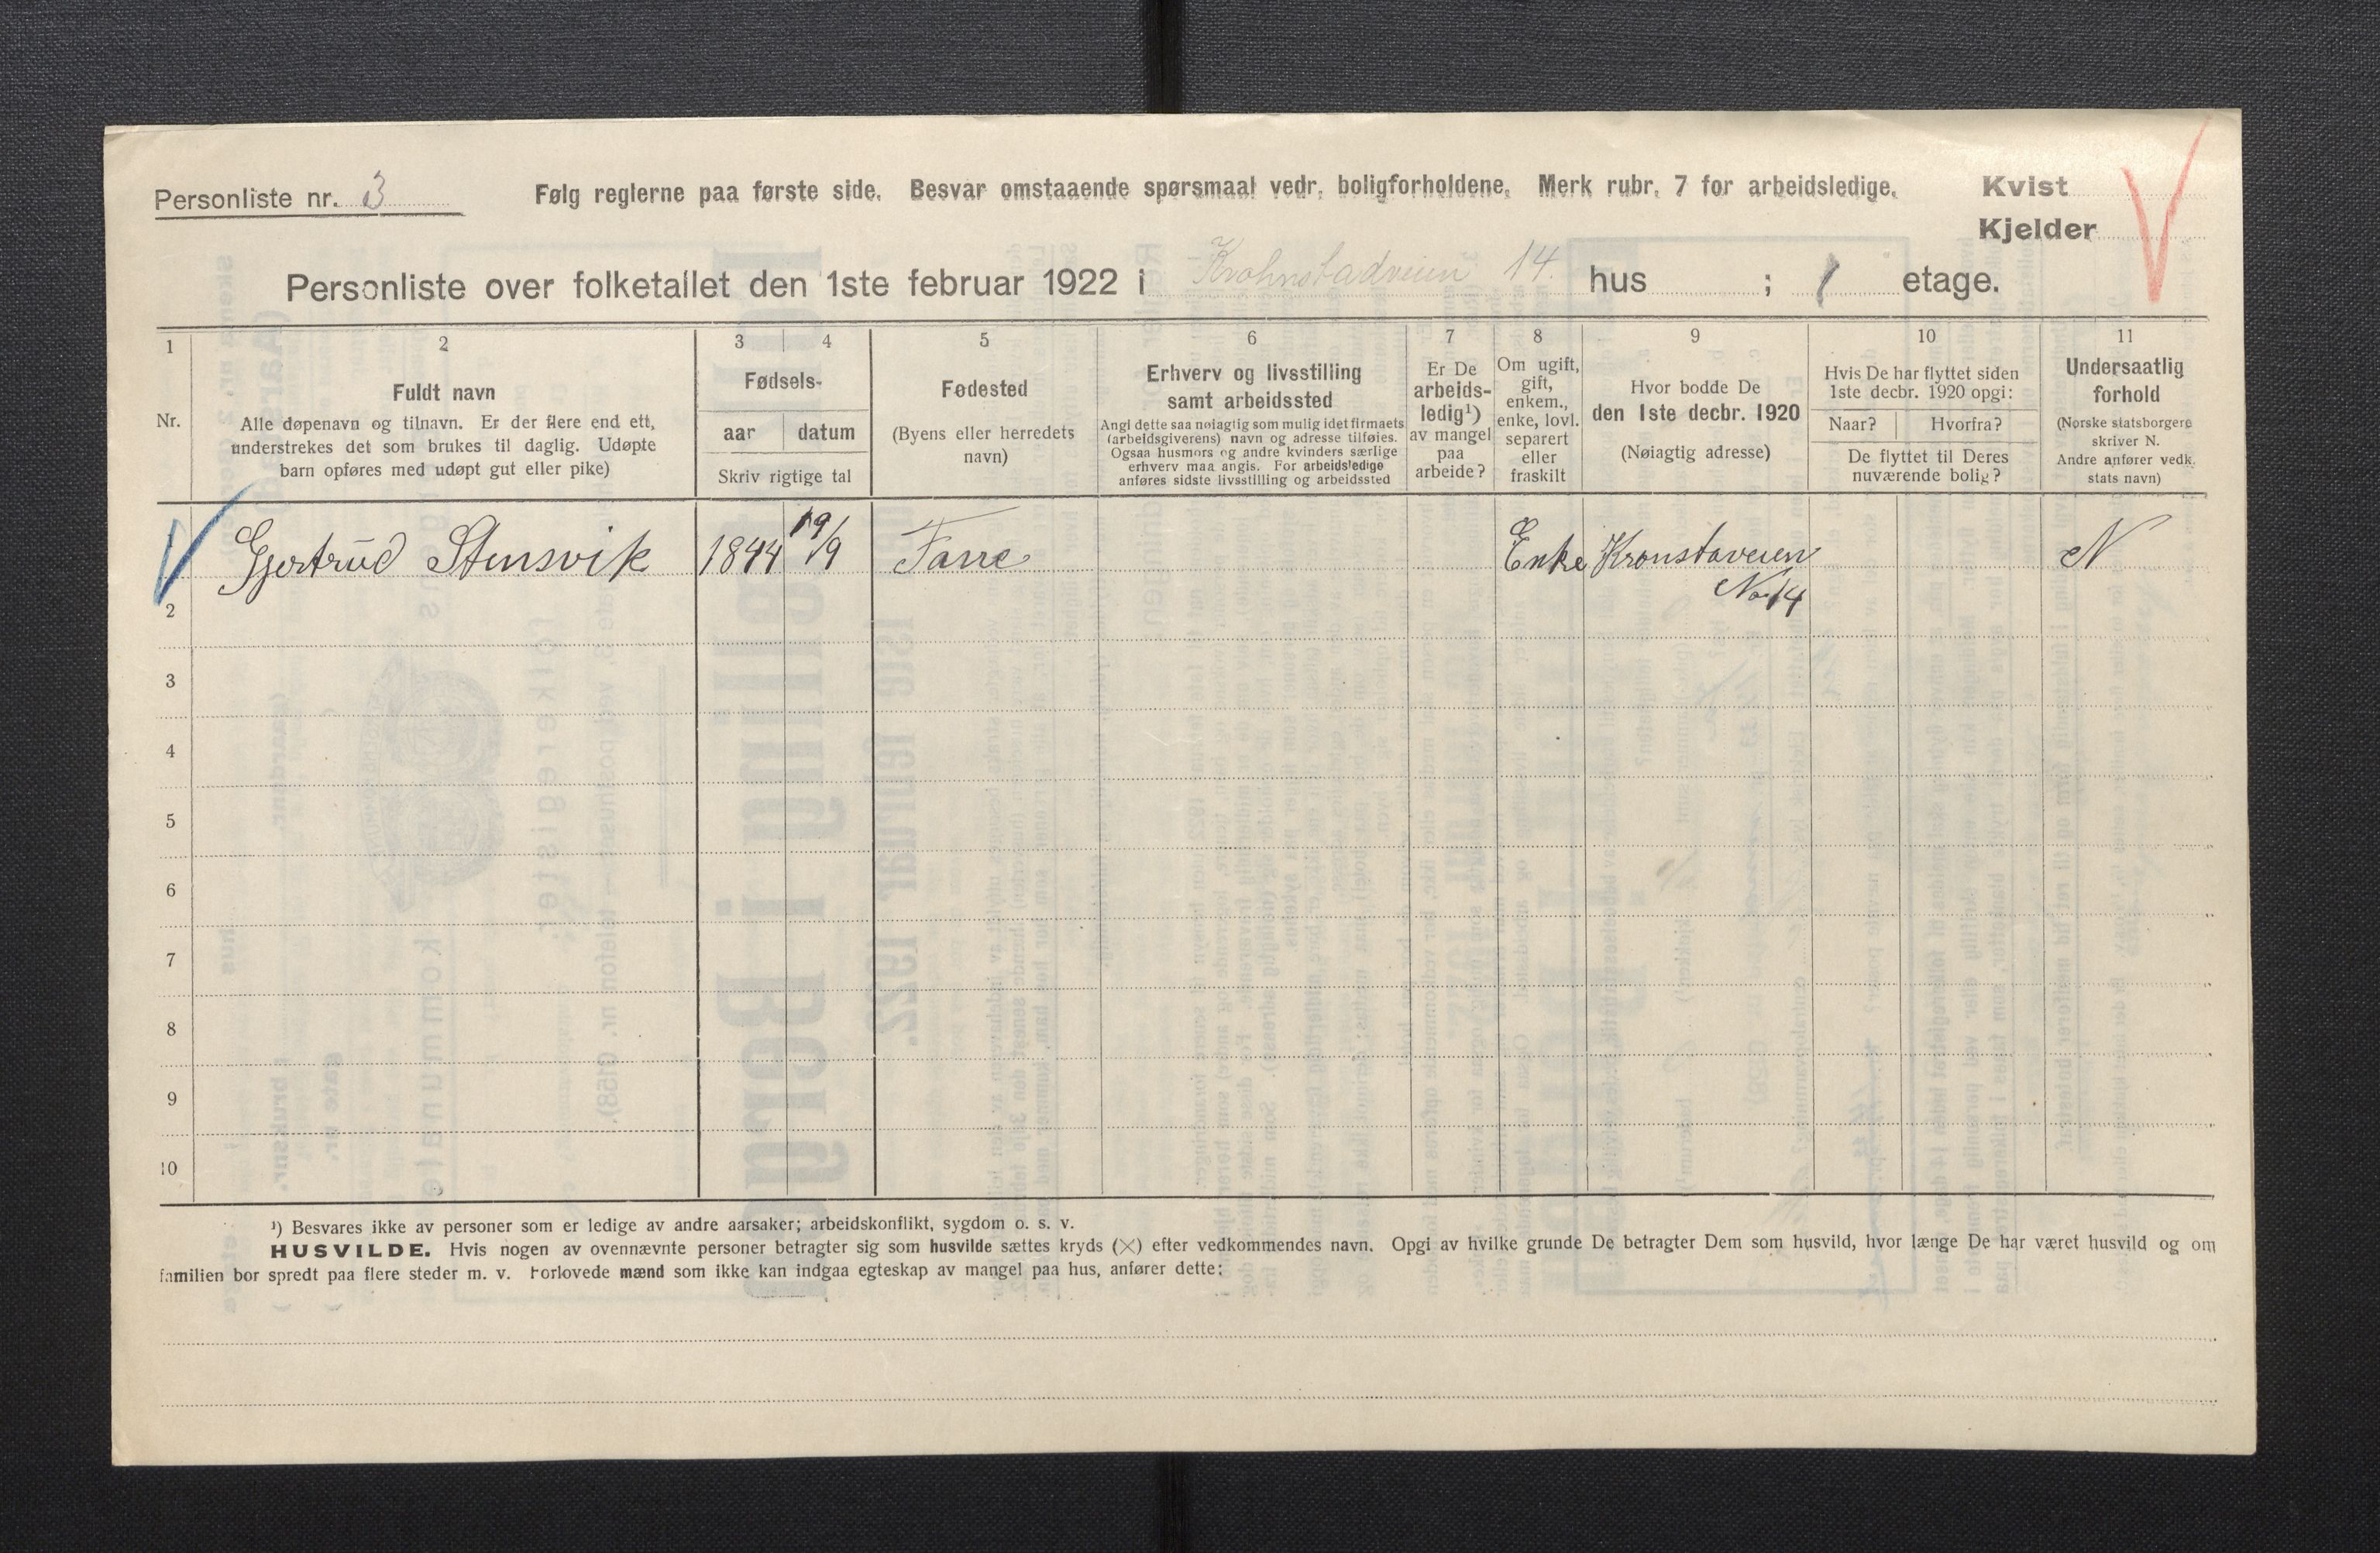 Personliste nr. 3
Følg reglerne paa første side. Besvar omstaaende spørsmaal vedr. boligforholdene. Merk rubr. 7 for arbeidsledige.
Kvist
Kjelder
Personliste over folketallet den 1ste februar 1922 i Krohnstadveien 14. hus ; 1 etage.
1 2 3 4 5 6 7 8 9 10 11
Nr.
Fuldt navn
Alle døpenavn og tilnavn. Er der flere end ett,
understrekes det som brukes til daglig. Udøpte
barn opføres med udøpt gut eller pike)
Fødsels-
aar datum
Skriv rigtige tal
Fødested
(Byens eller herredets
navn)
Erhverv og livsstilling
samt arbeidssted
Angi dette saa nøiagtig som mulig idet firmaets
(arbeidsgiverens) navn og adresse tilføies.
Ogsaa husmors og andre kvinders særlige
erhverv maa angis. For arbeidsledige
anføres sidste livsstilling og arbeidssted
Er De
arbeids-
ledig¹)
av mangel
paa
arbeide?
Om ugift,
gift,
enkem.,
enke, lovl.
separert
eller
fraskilt
Hvor bodde De
den 1ste decbr. 1920
(Nøiagtig adresse)
Hvis De har flyttet siden
1ste decbr. 1920 opgi:
Naar? Hvorfra?
De flyttet til Deres
nuværende bolig?
Undersaatlig
forhold
(Norske statsborgere
skriver N.
Andre anfører vedk.
stats navn)
Gjertrud Stensvik 1844 19/9 Enke Kronstaveien N
No 14
2
3
4
5
6
7
8
9
10
¹) Besvares ikke av personer som er ledige av andre aarsaker; arbeidskonflikt, sygdom o. s. v.
HUSVILDE. Hvis nogen av ovennævnte personer betragter sig som husvilde sættes kryds (×) efter vedkommendes navn. Opgi av hvilke grunde De betragter Dem som husvild, hvor længe De har været husvild og om
familien bor spredt paa flere steder m. v. Forlovede mænd som ikke kan indgaa egteskap av mangel paa hus, anfører dette: